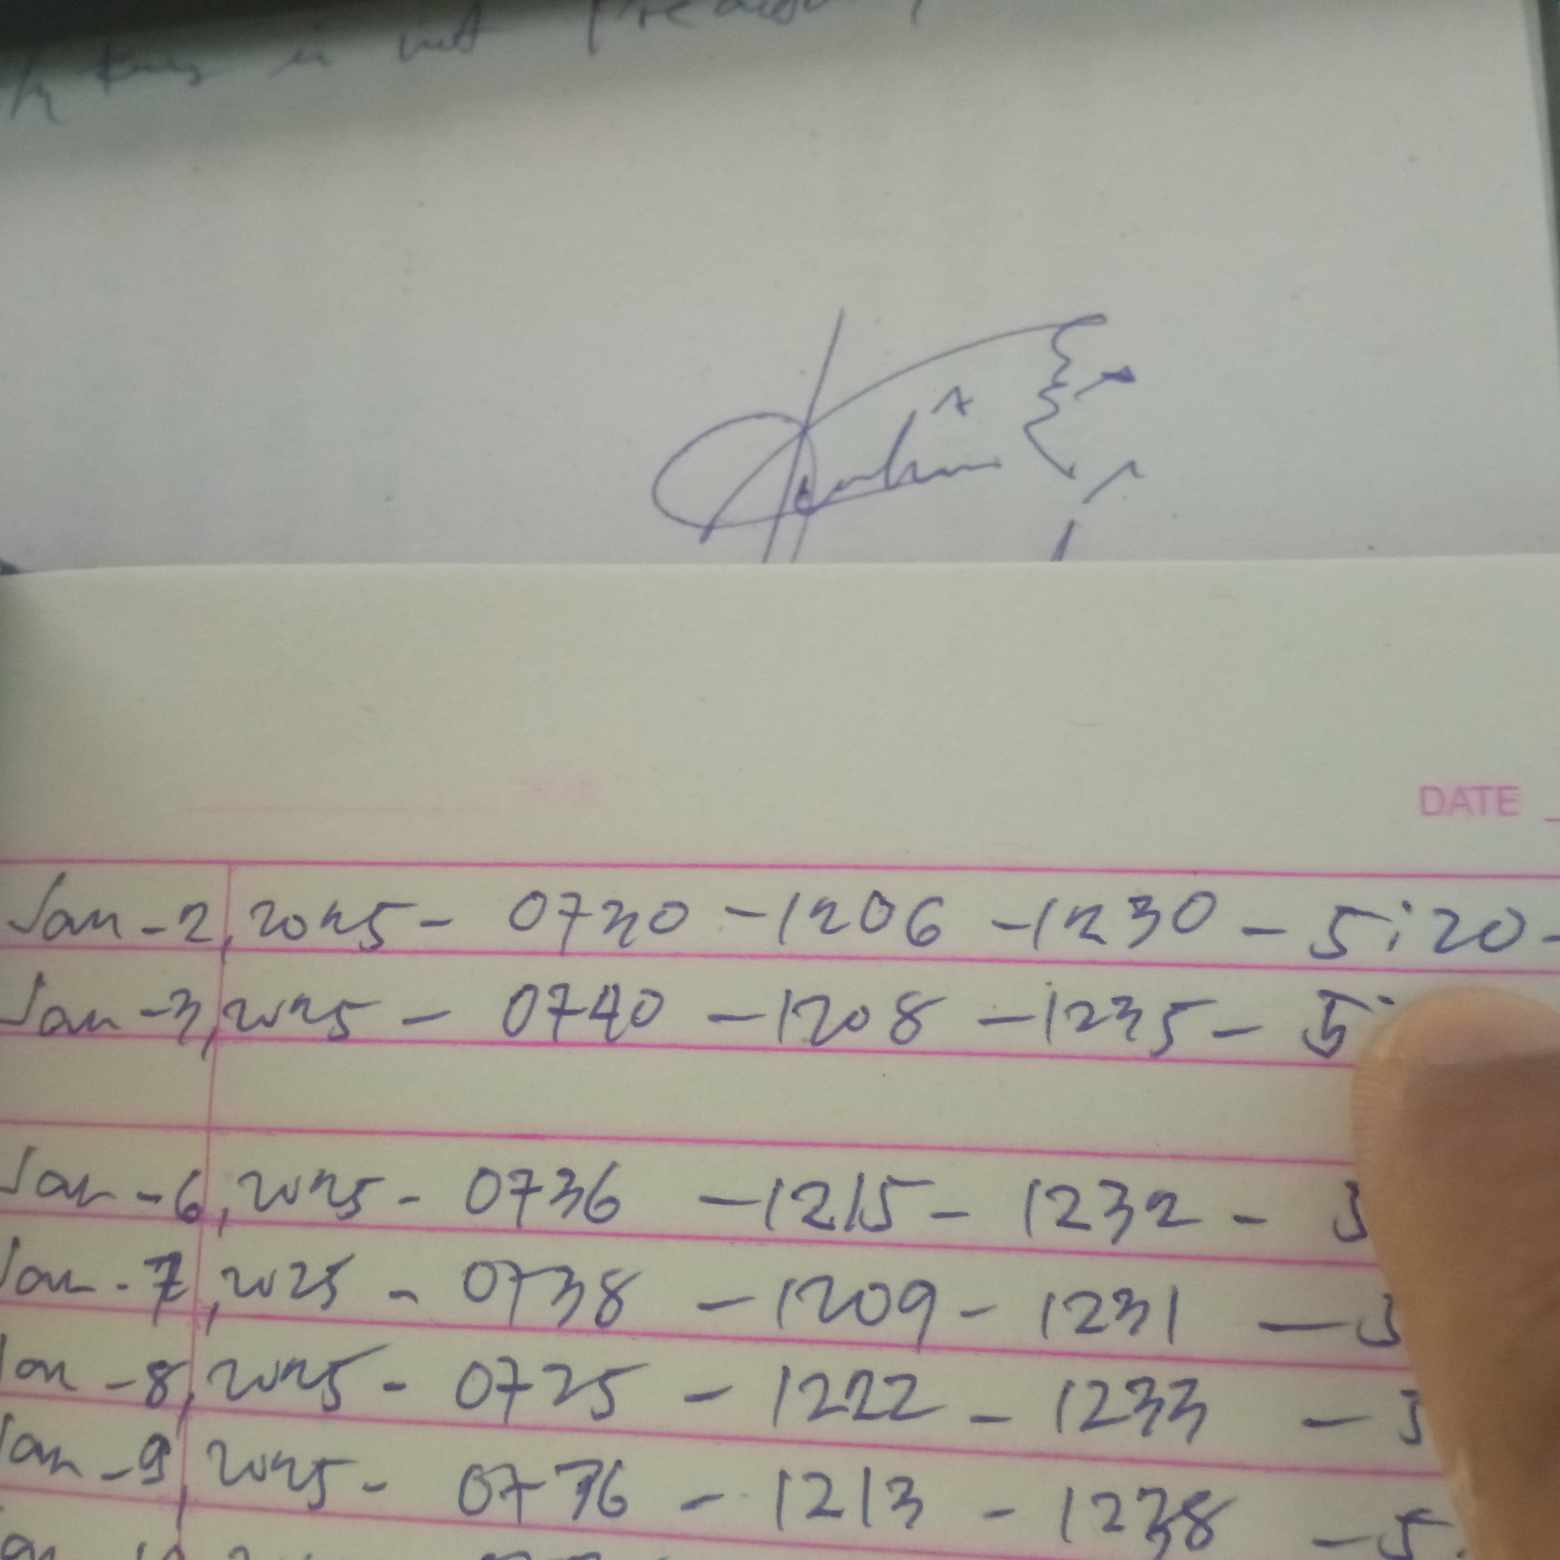 is not
DATE
Jan - 2, 2025 - 0730 - 1206 - 1230 - 5:20 -
Jan - 3, 2025 - 0740 - 1208 - 1235 - 5:
Jan - 6, 2025 - 0736 - 1215 - 1232 -
Jan - 7, 2025 - 0738 - 1209 - 1231 -
Jan - 8, 2025 - 0725 - 1222 - 1233 -
Jan - 9, 2025 - 0736 - 1213 - 1238 - 5